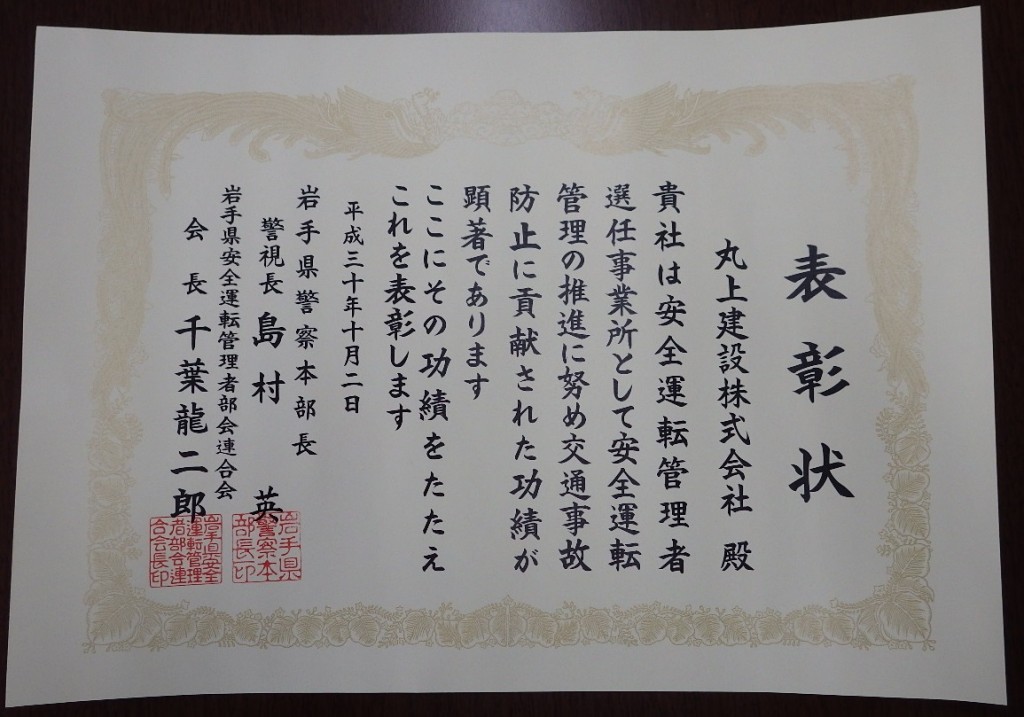 表彰状
丸上建設株式会社 殿
貴社は安全運転管理者
選任事業所として安全運転
管理の推進に努め交通事故
防止に貢献された功績が
顕著であります
ここにその功績をたたえ
これを表彰します
平成三十年十月二日
岩手県警察本部長
警視長 島村 英
岩手県
警察本
部長印
岩手県安全運転管理者部会連合会
会長 千葉龍二郎
岩手県安全
運転管理
者部会連
合会長印